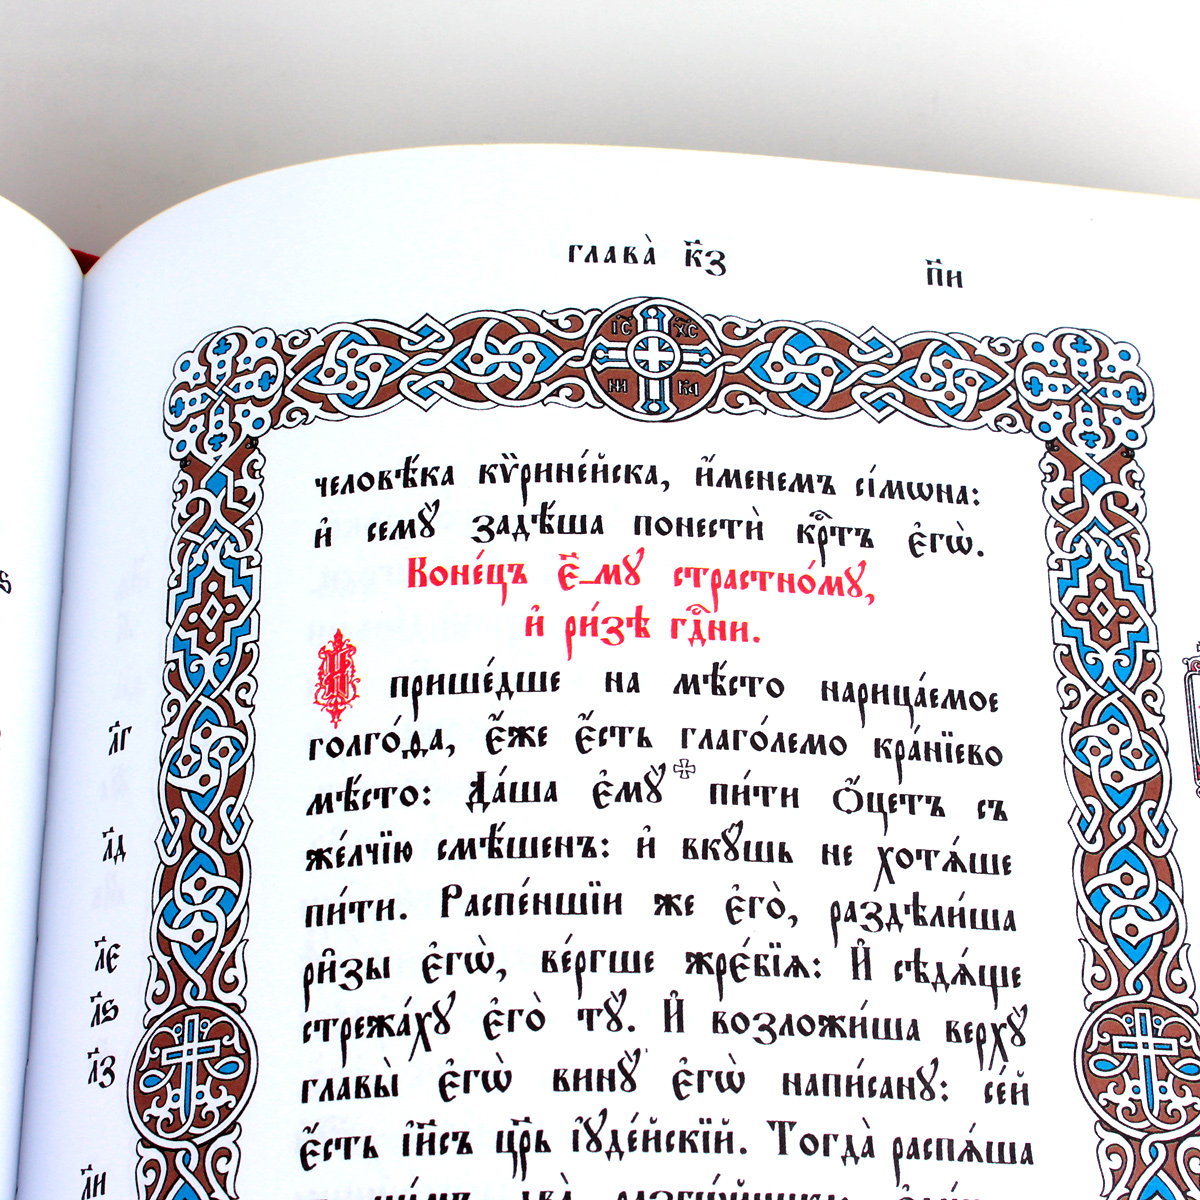 глава̀ к҃з
п҃и
І҃С Х҃С
НИ КА
человѣ́ка кѷрине́йска, и҆́менемъ сі́мѡна:
и҆ семꙋ̀ задѣ́ша понестѝ крⷭ҇тъ є҆гѡ̀.
Коне́цъ є҃_мꙋ страстно́мꙋ,
и҆ ри́зѣ гдⷭ҇ни.
И҆ прише́дше на мѣ́сто нарица́емое
голго́ѳа, є҆́же є҆́сть глаго́лемо кра́нїево
мѣ́сто: Да́ша є҆мꙋ̀ пи́ти ѻ҆́цетъ съ
же́лчїю смѣ́шенъ: и҆ вкꙋ́шь не хотѧ́ше
пи́ти. Распе́ншїи же є҆го̀, раздѣли́ша
ри̑зы є҆гѡ̀, ве́ргше жре́бїѧ: И҆ сѣдѧ́ще
стрежа́хꙋ є҆го̀ тꙋ̀. И҆ возложи́ша верхꙋ̀
главы̀ є҆гѡ̀ винꙋ̀ є҆гѡ̀ напи́санꙋ: се́й
є҆́сть і҆и҃съ цр҃ь і҆ꙋде́йскїй. Тогда̀ распѧ́ша
л҃г
л҃д
л҃є
л҃ѕ
л҃з
л҃и